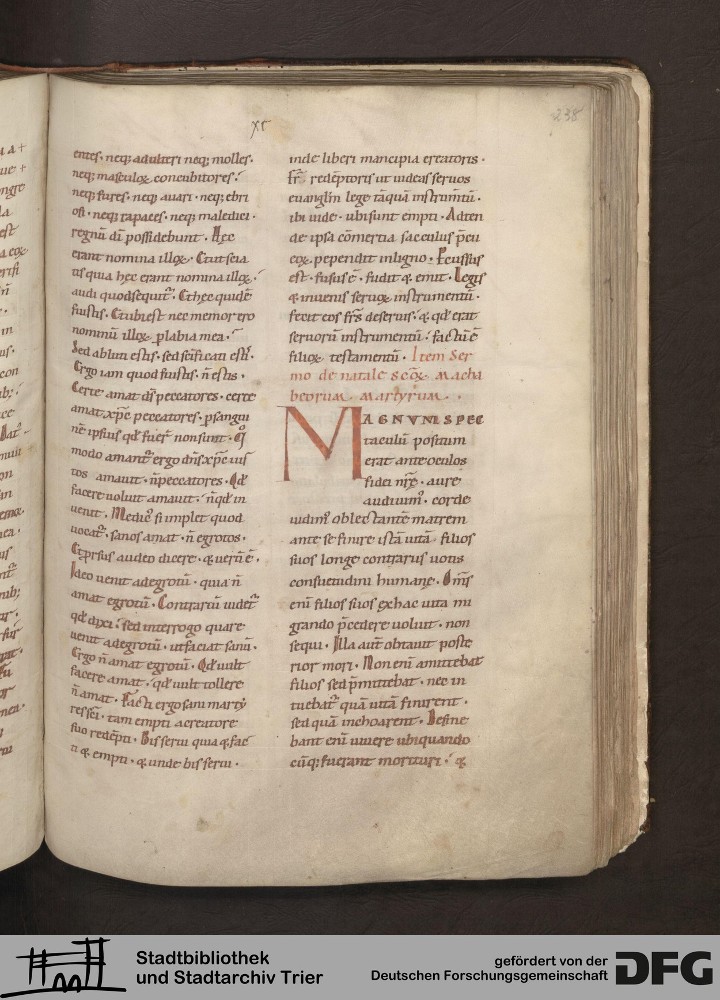 xv
238
entes· neq; adulteri neq; molles·
neq; masculoꝝ concubitores·
neq; fures· neq; auari· neq; ebri
osi· neq; rapaces· neq; maledici·
regnū dī possidebunt· Hec
erant nomina illoꝝ· Et ut scia
tis quia hec erant nomina illoꝝ·
audi quod sequit᷑· Et hec quidē
fuistis· Et ubi est nec memor ero
nominū illoꝝ p labia mea·
Sed abluti estis· sed sc̄ificati estis·
Ergo iam quod fuistis· n̄ estis·
Certe amat dſ peccatores· certe
amat xpc̄ peccatores· p sangui
nē ipsius qđ fuer̄ non sunt· Qͦ
modo amant᷑ ergo dn̄s xpc̄ iuſ
tos amauit· n̄ peccatores· Qđ
facere uoluit amauit· n̄ qđ in
uenit· Medicꝰ si implet quod
uocat᷑· sanos amat· n̄ egrotos·
Et prsus audeo dicere· & uerū ē·
Ideo uenit ad egrotū· quia n̄
amat egrotū· Contrariū uidet᷑
qđ dixi· sed interrogo quare
uenit ad egrotū· ut faciat sanū·
Ergo n̄ amat egrotū· Qđ uult
facere amat· qđ uult tollere
n̄ amat· Facti ergo sani marty
res sc̄i· tam empti a creatore
suo redēpti· Bis serui quia & fac
ti & empti· & unde bis serui·
inde liberi mancipia creatoris·
fr̄s redēptoris ut uideas seruos
euangliū lege tāquā instrumtū·
ibi uide· ubi sunt empti· Adten
de ipsa cōmertia sacculus p̄cii
eoꝝ pependit in ligno· Percussus
est· fusus ē· fudit & emit· Legis
& inuenis seruoꝝ instrumentū·
fecit eos fr̄s de seruis· & qđ erat
seruorū instrumentū· factū ē
filioꝝ testamentū· Item Ser
mo de natale sc̄oꝝ Macha
beorum· martyrum·
MAGNUM SPEC
taculū positum
erat ante oculos
fidei nr̄e· aure
audiuimꝰ· corde
uidimꝰ oblectantē matrem
ante se finire istā uitā filios
suos longe contrarus uotis
consuetudini humane· Om̄s
enī filios suos ex hac uita mi
grando p̄cedere uolunt· non
sequi· Illa aut̄ obtauit poste
rior mori· Non enī amittebat
filios sed p̄mittebat· nec in
tuebat᷑ quā uitā finirent·
sed quā inchoarent· Desine
bant enī uiuere ubi quando
cūq; fuerant morituri· &
Stadtbibliothek
und Stadtarchiv Trier
gefördert von der
Deutschen Forschungsgemeinschaft
DFG